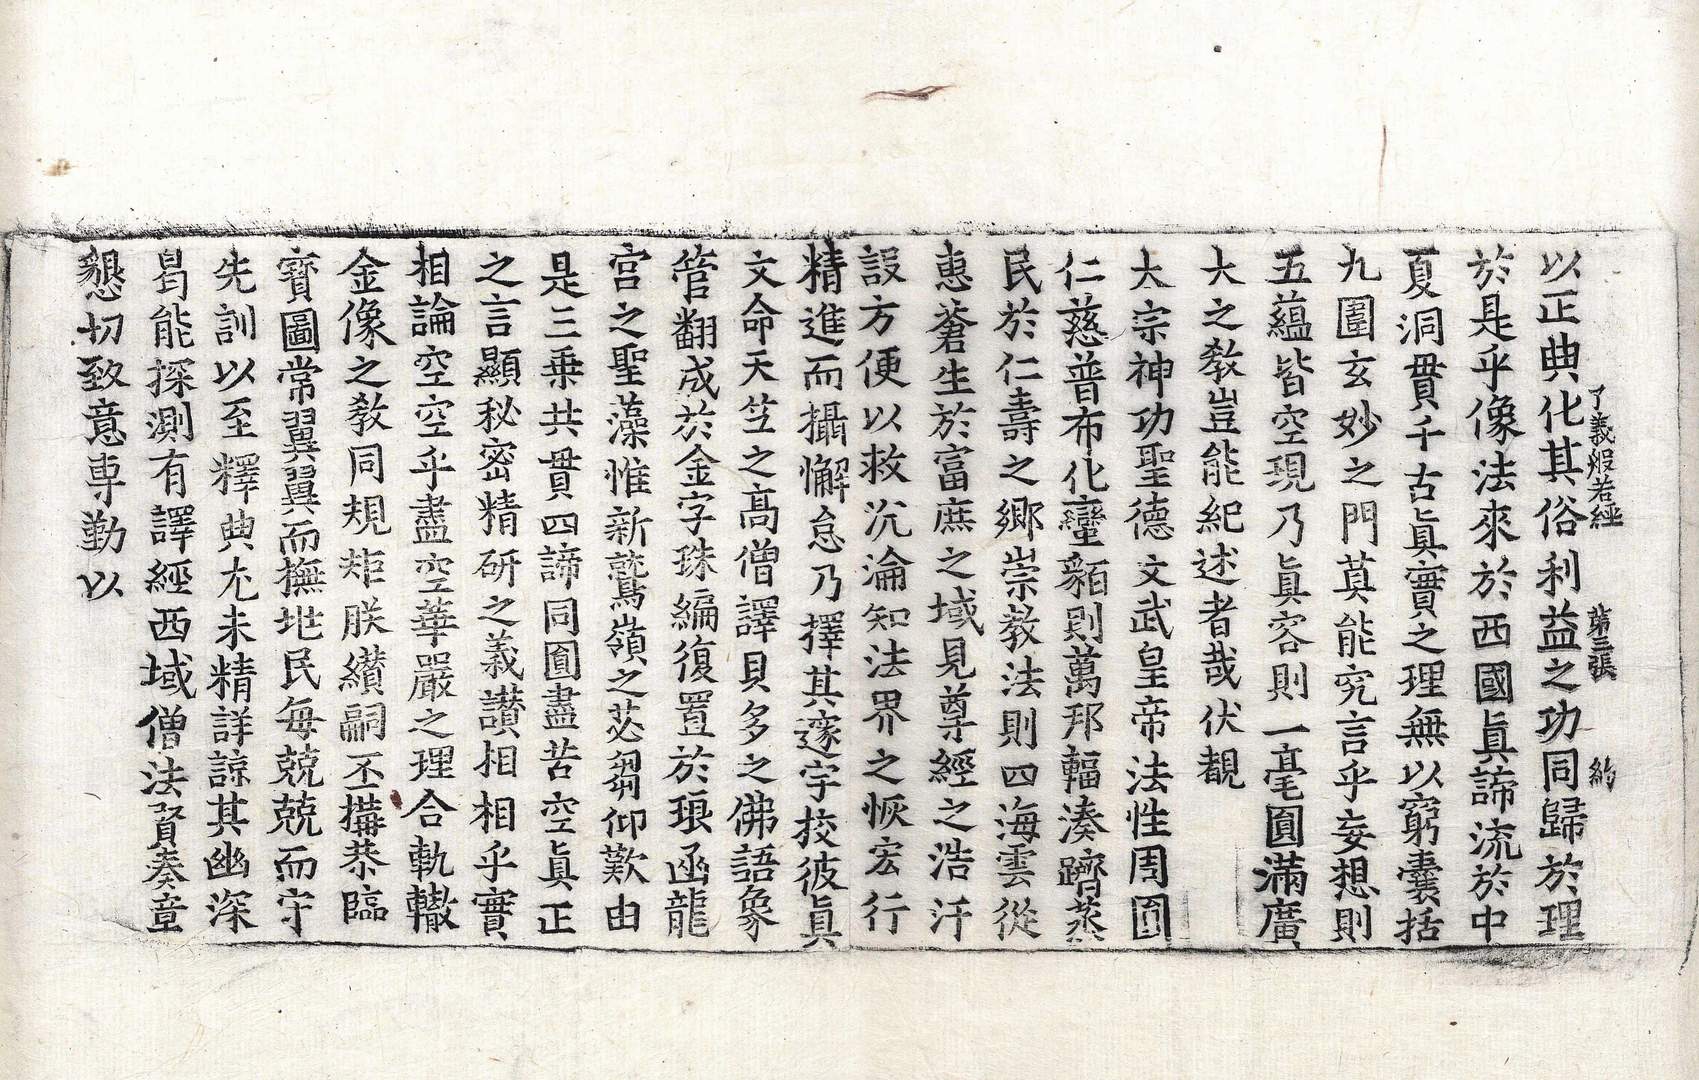 了義般若經 第三張 約
以正典化其俗利益之功同歸於理
於是乎像法來於西國眞諦流於中
夏洞貫千古眞實之理無以窮囊括
九圍玄妙之門莫能究言乎妄想則
五蘊皆空現乃眞容則一毫圓滿廣
大之敎豈能紀述者哉伏覩
太宗神功聖德文武皇帝法性周圓
仁慈普布化蠻貊則萬邦輻湊躋蒸
民於仁壽之鄉崇敎法則四海雲從
惠蒼生於富庶之域見尊經之浩汗
設方便以救沉淪知法界之恢宏行
精進而攝懈怠乃擇其邃宇挍彼眞
文命天竺之高僧譯貝多之佛語象
管翻成於金字珠編復置於琅函龍
宮之聖藻惟新鷲嶺之苾芻仰歎由
是三乘共貫四諦同圓盡苦空眞正
之言顯秘密精研之義讃相相乎實
相論空空乎盡空華嚴之理合軌轍
金像之敎同規矩朕纉嗣丕搆恭臨
寶圖常翼翼而撫地民每兢兢而守
先訓以至釋典尤未精詳諒其幽深
曷能探測有譯經西域僧法賢奏章
懇切致意專勤以